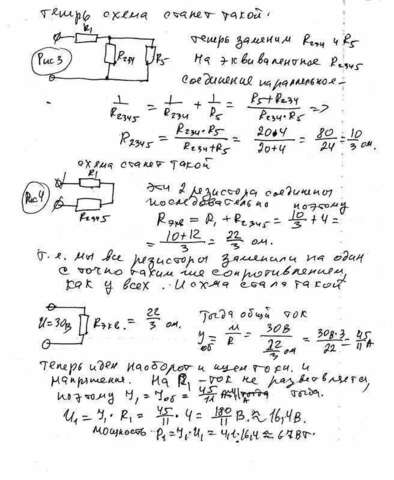 теперь схема станет такой:
R1
Рис 3
R234
R5
теперь заменим R234 и R5
На эквивалентное R2345
соединение параллельное-
1/R2345 = 1/R234 + 1/R5 = R5+R234/R234·R5 =>
R2345 = R234·R5/R234+R5 = 20·4/20+4 = 80/24 = 10/3 ом.
схема станет такой
R1
Рис 4
R2345
эти 2 резистора соединены
последовательно поэтому
Rэкв = R1 + R2345 = 10/3 + 4 =
= 10+12/3 = 22/3 ом.
т.е. мы все резисторы заменили на один
с точно таким же сопротивлением,
как у всех. И схма стала такой
U=30В
Rэкв. = 22/3 ом.
Тогда общий ток
Yоб = U/R = 30В/22/3 ом = 30В·3/22 = 45/11 А
Теперь идем наоборот и ищем токи. и
напряжения. На R1 - ток не разветвляется,
поэтому Y1 = Yоб = 45/11 А тогда.
U1 = Y1· R1 = 45/11 · 4 = 180/11 В. ≈ 16,4В.
мощность P1 = Y1·U1 = 4,1·16,4 ≈ 67Вт.